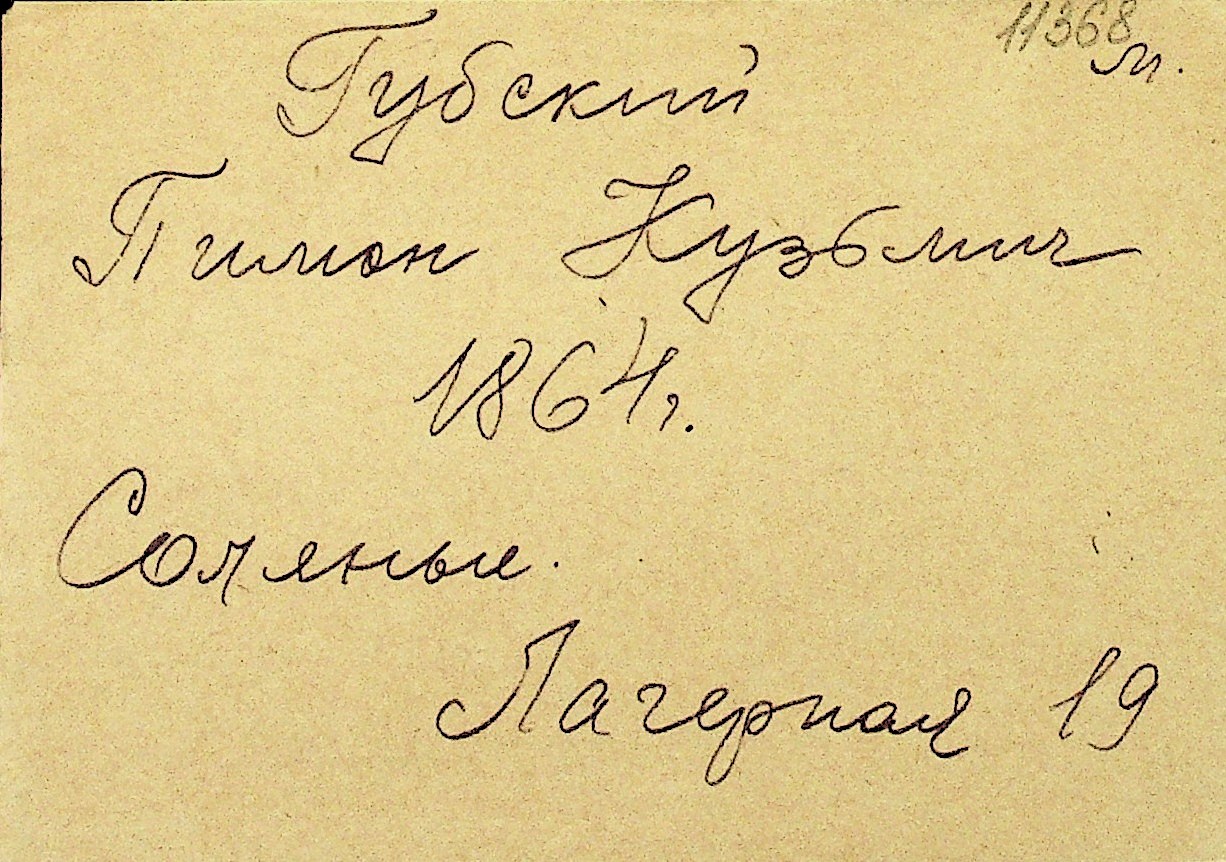 11368
м.
Губский
Пимон Кузьмич
1864г.
Соляные.
Лагерная 19